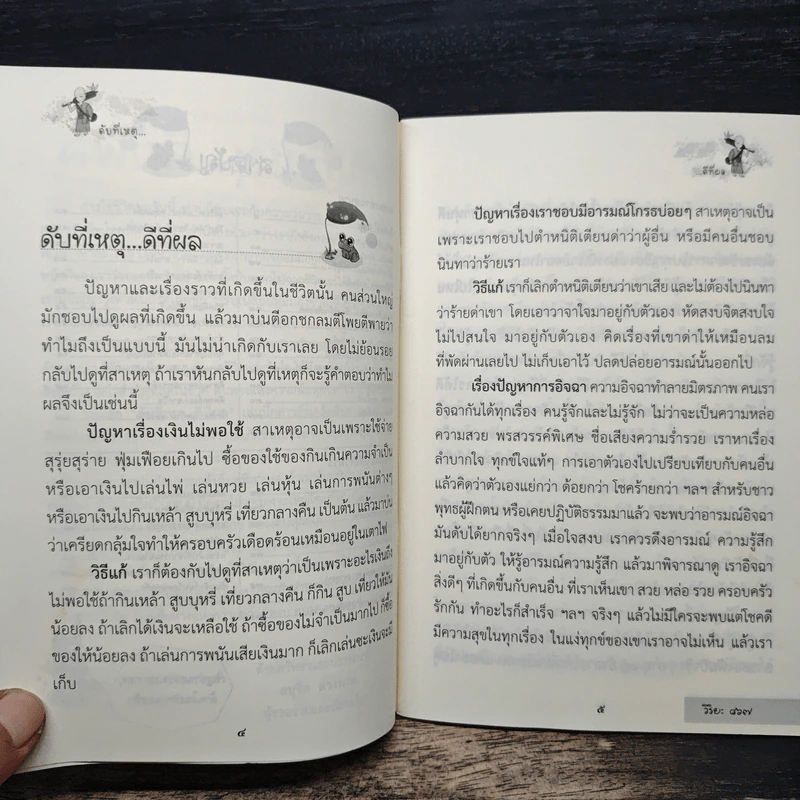 ดับที่เหตุ...
ดับที่เหตุ...ดีที่ผล
ปัญหาและเรื่องราวที่เกิดขึ้นในชีวิตนั้น คนส่วนใหญ่
มักชอบไปดูผลที่เกิดขึ้น แล้วมาบ่นตีอกชกลมตีโพยตีพายว่า
ทำไมถึงเป็นแบบนี้ มันไม่น่าเกิดกับเราเลย โดยไม่ย้อนรอย
กลับไปดูที่สาเหตุ ถ้าเราหันกลับไปดูที่เหตุก็จะรู้คำตอบว่าทำไม
ผลจึงเป็นเช่นนี้
ปัญหาเรื่องเงินไม่พอใช้ สาเหตุอาจเป็นเพราะใช้จ่าย
สุรุ่ยสุร่าย ฟุ่มเฟือยเกินไป ซื้อของใช้ของกินเกินความจำเป็น
หรือเอาเงินไปเล่นไพ่ เล่นหวย เล่นหุ้น เล่นการพนันต่างๆ
หรือเอาเงินไปกินเหล้า สูบบุหรี่ เที่ยวกลางคืน เป็นต้น แล้วมาบ่น
ว่าเครียดกลุ้มใจทำให้ครอบครัวเดือดร้อนเหมือนอยู่ในเตาไฟ
วิธีแก้ เราก็ต้องกลับไปดูที่สาเหตุว่าเป็นเพราะอะไรเงินถึง
ไม่พอใช้ถ้ากินเหล้า สูบบุหรี่ เที่ยวกลางคืน ก็กิน สูบ เที่ยวให้มัน
น้อยลง ถ้าเลิกได้เงินจะเหลือใช้ ถ้าซื้อของไม่จำเป็นมากไป ก็ซื้อ
ของให้น้อยลง ถ้าเล่นการพนันเสียเงินมาก ก็เลิกเล่นซะเงินจะมี
เก็บ
๔
ดีที่ผล
ปัญหาเรื่องเราชอบมีอารมณ์โกรธบ่อยๆ สาเหตุอาจเป็น
เพราะเราชอบไปตำหนิติเตียนด่าว่าผู้อื่น หรือมีคนอื่นชอบ
นินทาว่าร้ายเรา
วิธีแก้ เราก็เลิกตำหนิติเตียนว่าเขาเสีย และไม่ต้องไปนินทา
ว่าร้ายด่าเขา โดยเอาวาจาใจมาอยู่กับตัวเอง หัดสงบจิตสงบใจ
ไม่ไปสนใจ มาอยู่กับตัวเอง คิดเรื่องที่เขาด่าให้เหมือนลม
ที่พัดผ่านเลยไป ไม่เก็บเอาไว้ ปลดปล่อยอารมณ์นั้นออกไป
เรื่องปัญหาการอิจฉา ความอิจฉาทำลายมิตรภาพ คนเรา
อิจฉากันได้ทุกเรื่อง คนรู้จักและไม่รู้จัก ไม่ว่าจะเป็นความหล่อ
ความสวย พรสวรรค์พิเศษ ชื่อเสียงความร่ำรวย เราหาเรื่อง
ลำบากใจ ทุกข์ใจแท้ๆ การเอาตัวเองไปเปรียบเทียบกับคนอื่น
แล้วคิดว่าตัวเองแย่กว่า ด้อยกว่า โชคร้ายกว่า ฯลฯ สำหรับชาว
พุทธผู้ฝึกตน หรือเคยปฏิบัติธรรมมาแล้ว จะพบว่าอารมณ์อิจฉา
มันดับได้ยากจริงๆ เมื่อใจสงบ เราควรดึงอารมณ์ ความรู้สึก
มาอยู่กับตัว ให้รู้อารมณ์ความรู้สึก แล้วมาพิจารณาดู เราอิจฉา
สิ่งดีๆ ที่เกิดขึ้นกับคนอื่น ที่เราเห็นเขา สวย หล่อ รวย ครอบครัว
รักกัน ทำอะไรก็สำเร็จ ฯลฯ จริงๆ แล้วไม่มีใครจะพบแต่โชคดี
มีความสุขในทุกเรื่อง ในแง่ทุกข์ของเขาเราอาจไม่เห็น แล้วเรา
๕
วิริยะ ๘๖๗